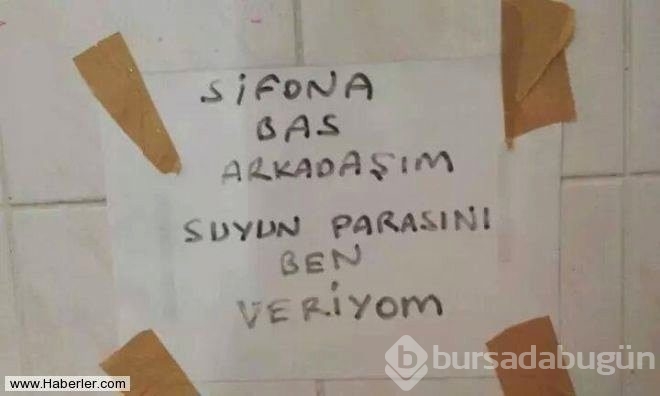 SİFONA
BAS
ARKADAŞIM
SUYUN PARASINI
BEN
VERİYOM
b bursadabugün
www.Haberler.com